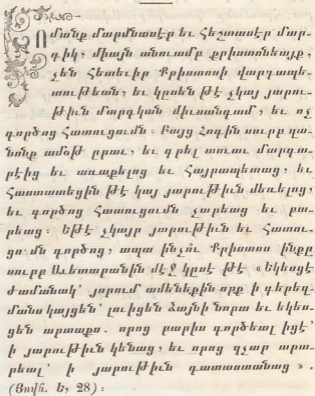 Ոմանք մարմնասէր եւ հեշտասէր մար-
դիկ, միայն անուամբ քրիստոնեայք,
չեն հետեւիր Քրիստոսի վարդապե-
տութեան, եւ կըսեն թէ չկայ յարու-
թիւն մարդկան միւսանգամ, եւ ոչ
գործոց հատուցումն։ Բայց Հոգին սուրբ զա-
նոնք ամօթ ըրաւ, եւ գրել տուաւ մարգա-
րէից եւ առաքելոց եւ Հայրապետաց, եւ
հաստատեցին թէ կայ յարութիւն մեռելոց,
եւ գործոց հատուցումն չարեաց եւ բա-
րեաց։ Եթէ չկայր յարութիւն եւ հատու-
ցումն գործոց, ապա ինչո՞ւ Քրիստոս ինքը
սուրբ Աւետարանին մէջ կըսէ թէ «Եկեսցէ
ժամանակ՝ յորում ամենեքին որք ի գերեզ-
մանս կայցեն՝ լուիցեն ձայնի նորա եւ եկես-
ցեն արտաքս. որոց բարիս գործեալ իցէ՝
ի յարութիւն կենաց, եւ որոց զչար արա-
րեալ՝ ի յարութիւն դատաստանաց».
(Յովհ. Ե, 28)։